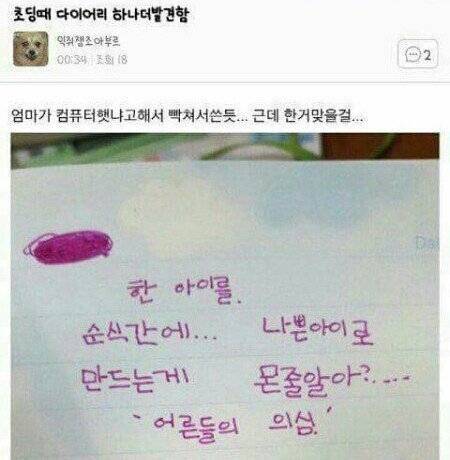 초딩때 다이어리 하나더발견함
익쥐쟁조아부르
00:34 · 조회 18
2
엄마가 컴퓨터햇냐고해서 빡쳐서쓴듯... 근데 한거맞을걸...
한 아이를.
순식간에... 나쁜아이로
만드는게 몬줄알아?....
'어른들의 의심.'